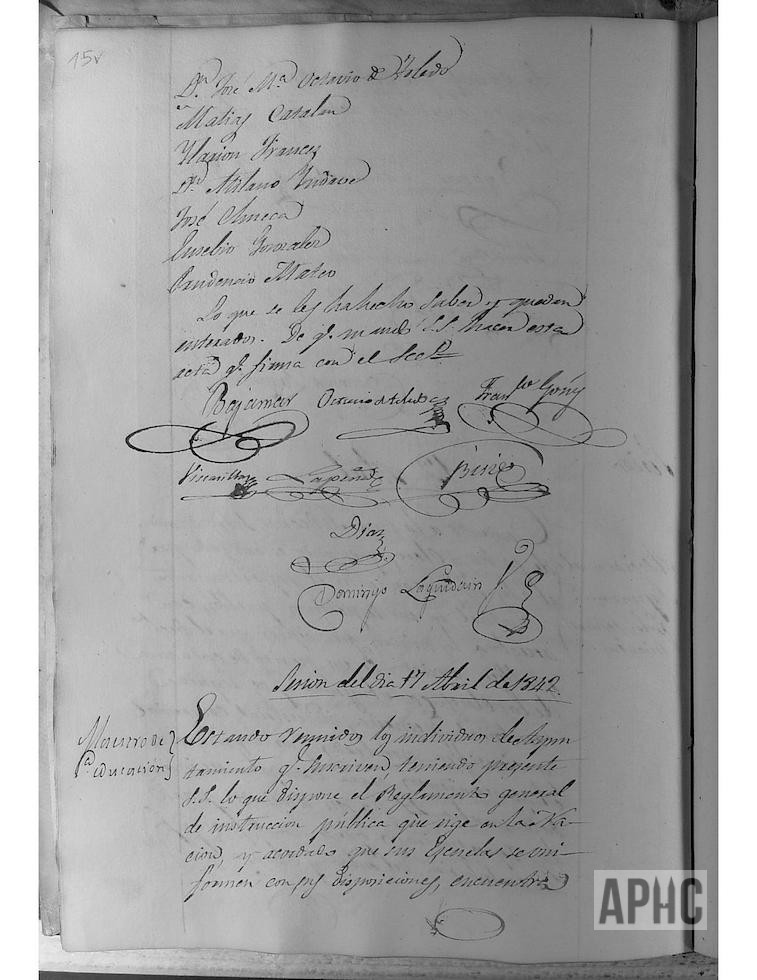 15v
Dn. José Ma. Octavio de Toledo
Matias Catalan
Ylarion Frances
Dn. Atilano Yndave
José Chueca
Eusebio Gonzalez
Prudencio Mateo
Lo que se les ha hecho saber y quedan
enterados. De qe. mandó S.S. hacer esta
acta qe. firma con el Secº.
Bajamar Octavio de Toledo Franco. Goñy
Lapeña
Diaz
Domingo Laquidain
Sesion del dia 17 Abril de 1842.
Maestro de
pa. educacion
Estando reunidos los individuos de Ayun
tamiento qe. suscriven, teniendo presente
S.S. lo que dispone el Reglamento general
de instruccion pública que rige en la Na-
cion, y acordado que sus Escuelas se uni-
formen con sus disposiciones, encuentra
APHC